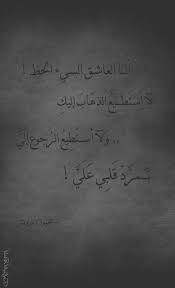 أنا العاشق السيء الحظ !
لا أستطيع الذهاب إليك
.. ولا أستطيع الرجوع إليَّ
تمرد قلبي عليَّ !